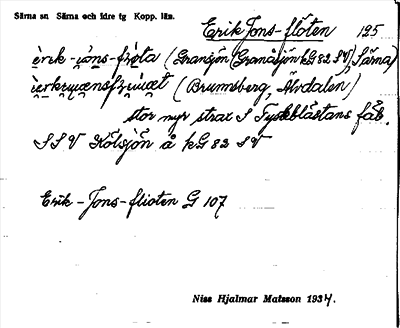 Särna sn Särna och Idre tg Kopp. län.
Erik Jons-flöten 125
èrɩk-jo̱ns-flò̱ta (Gransjön (Granåsjön kG 82 SV), Särna)
(Brunnsberg, Älvdalen)
stor myr strax S Tyskblästans fåb.
SSV Kölsjön å kG 82 SV
Erik-Jons-flioten G 107
Niss Hjalmar Matsson 1934.